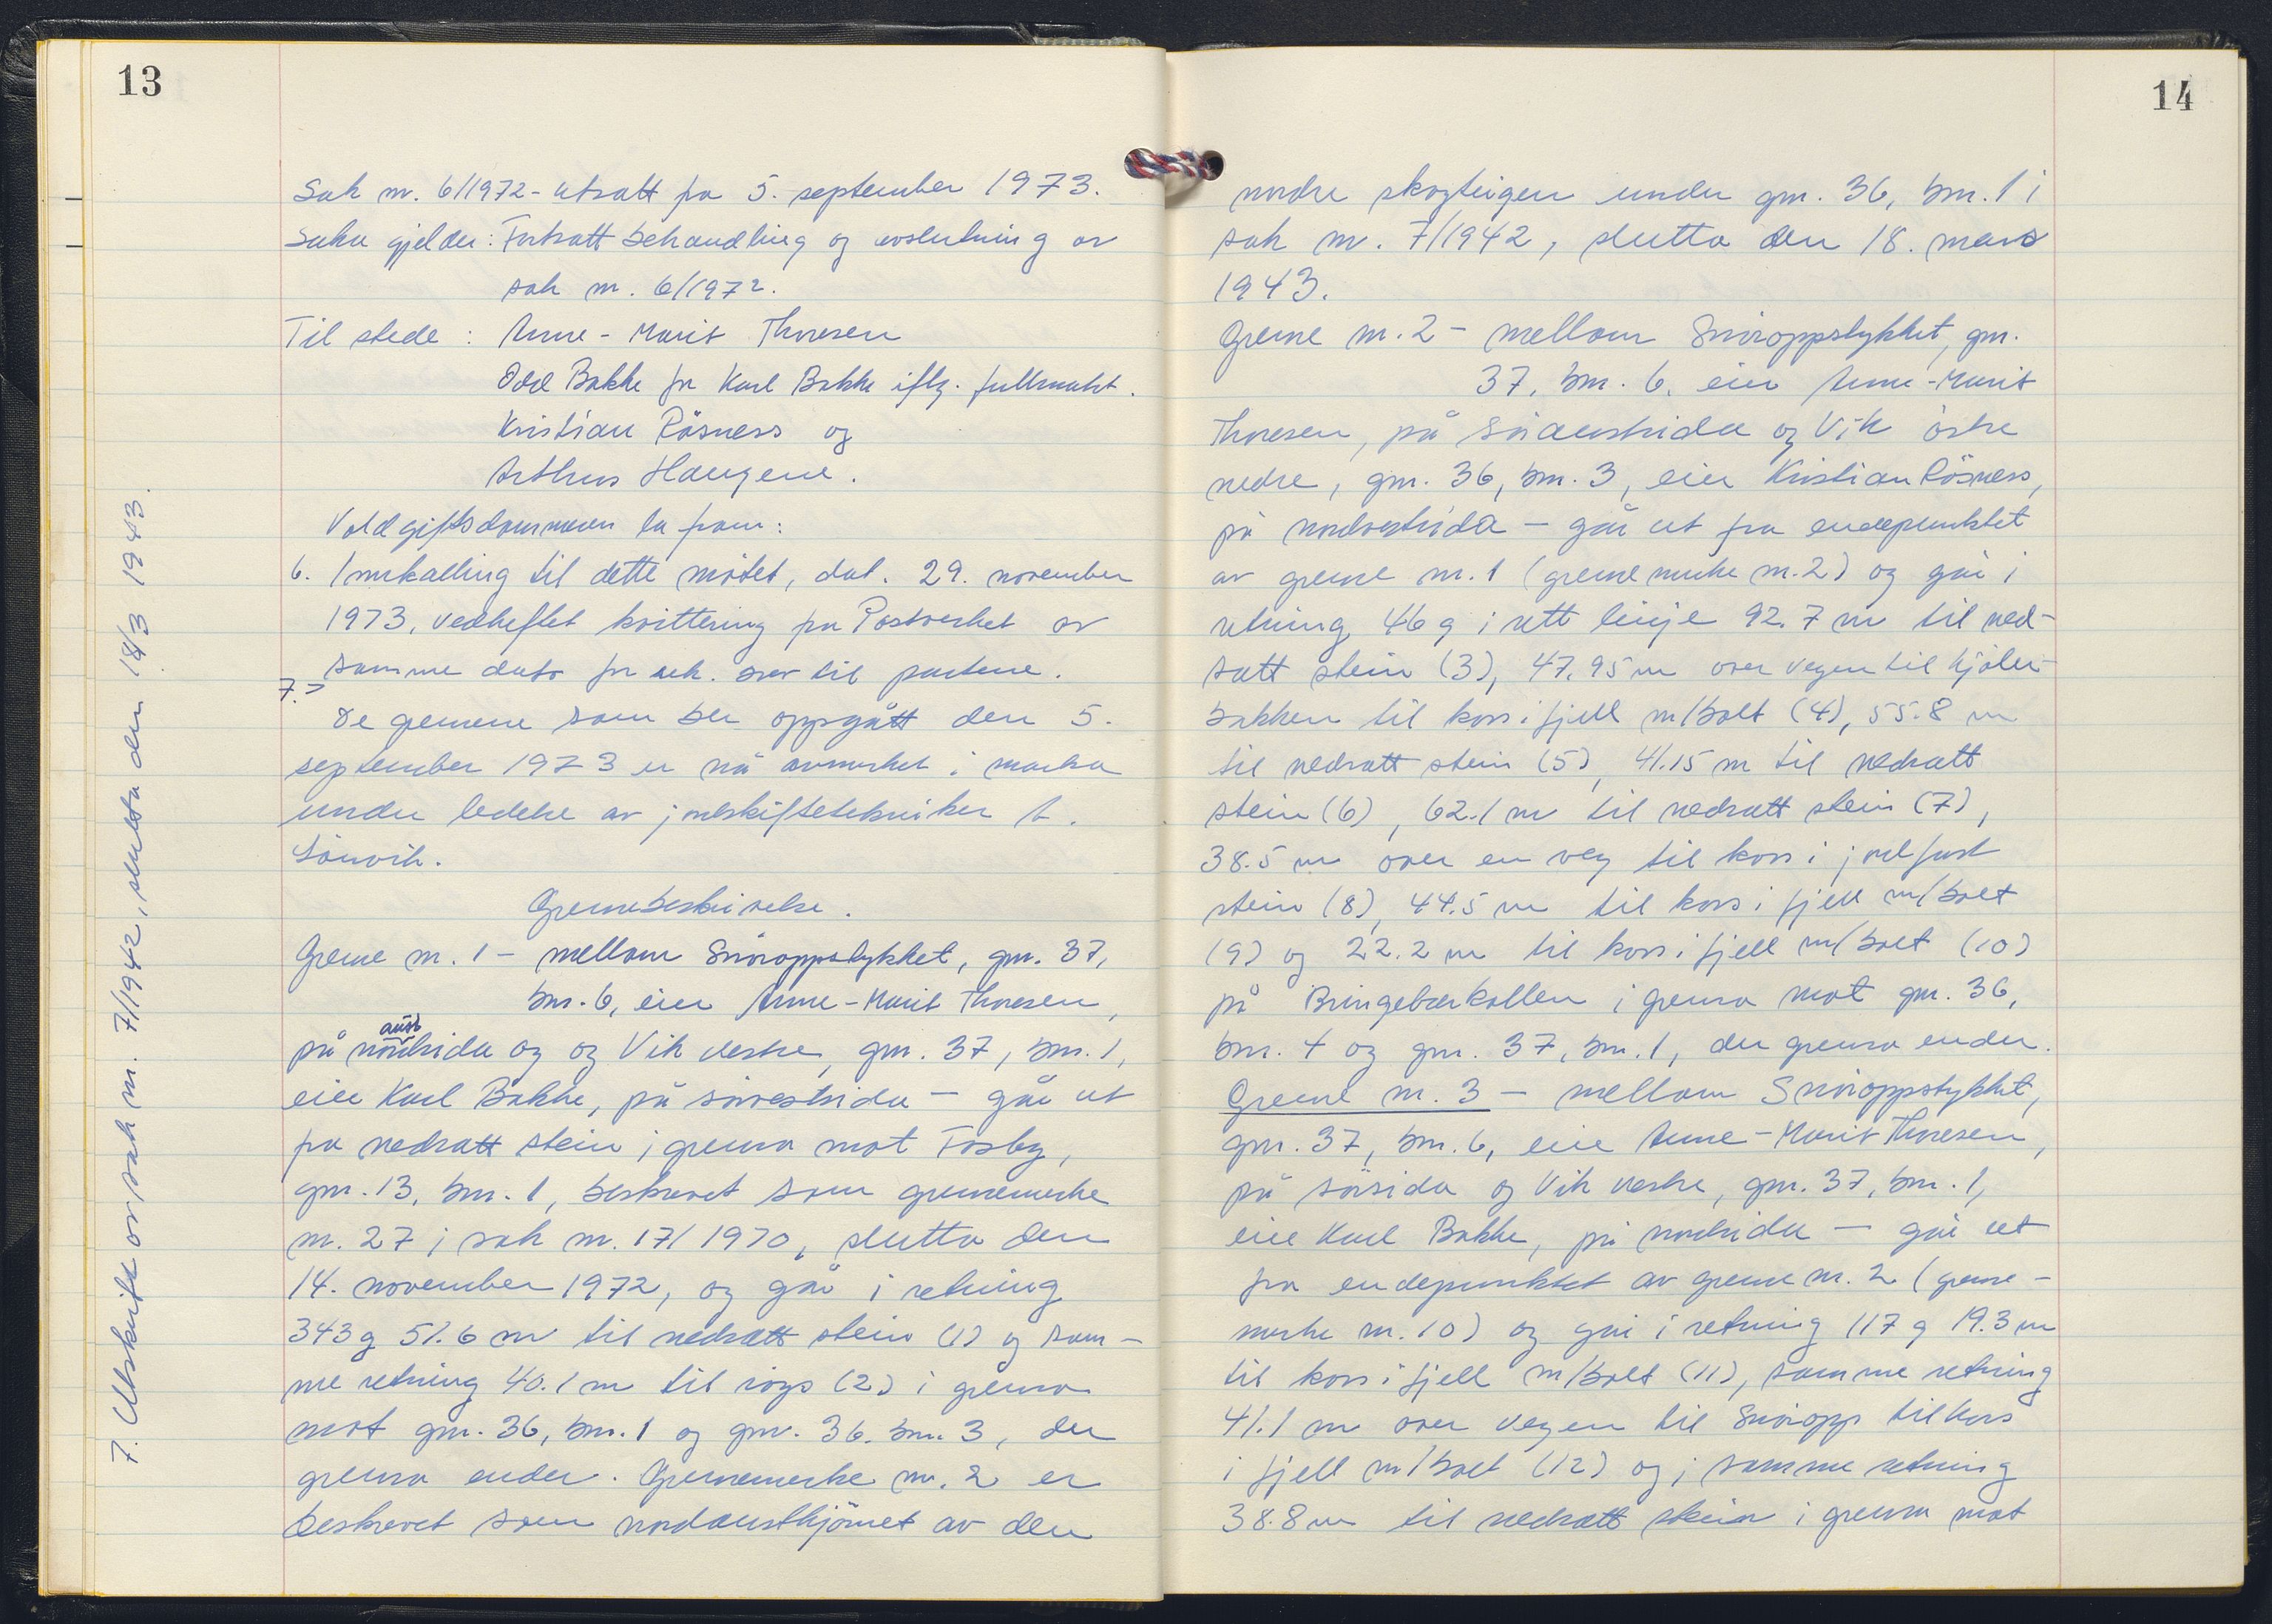 13
Sak nr. 6/1972 - utsatt fra 5. september 1973.
Saka gjelder: Fortsatt behandling og avslutning av
sak nr. 6/1972.
Til stede: Anne-Marit Thoresen
Odd Bakke for Karl Bakke iflg. fullmakt.
Kristian Røsness og
Arthur Haugene.
Voldgiftsdommeren la fram:
6. Innkalling til dette møtet, dat. 29. november
1973, vedheftet kvittering fra Postverket av
samme dato for rek. brev til partene.
7.>
De grensene som ble oppgått den 5.
september 1973 er nå avmerket i marka
under ledelse av jordskiftetekniker A.
Sønvik.
Grensebeskrivelse.
Grense nr. 1 - mellom Snøroppstykket, gnr. 37,
bnr. 6, eier Anne-Marit Thoresen,
aust
på nordsida og og Vik vestre, gnr. 37, bnr. 1,
eier Karl Bakke, på sørvestsida - går ut
fra nedsatt stein i grensa mot Fosby,
gnr. 13, bnr. 1, beskrevet som grensemerke
nr. 27 i sak nr. 17/1970, slutta den
14. november 1972, og går i retning
343g 51.6 m til nedsatt stein (1) og sam-
me retning 40.1 m til røys (2) i grensa
mot gnr. 36, bnr. 1 og gnr. 36. bnr. 3, der
grensa ender. Grensemerke nr. 2 er
beskrevet som nordausthjørnet av den
7. Utskrift av sak nr. 7/1942, slutta den 18/3 1943.
14
nordre skogteigen under gnr. 36, bnr. 1 i
sak nr. 7/1942, slutta den 18. mars
1943.
Grense nr. 2 - mellom Snøroppstykket, gnr.
37, bnr. 6. eier Anne-Marit
Thoresen, på søraustsida og Vik østre
nedre, gnr. 36, bnr. 3, eier Kristian Røsness,
på nordvestsida - går ut fra endepunktet
av grense nr. 1 (grensemerke nr. 2) og går i
retning 46 g i rett linje 92.7 m til ned-
satt stein (3), 47.95 m over vegen til Kjøler-
bakken til kors i fjell m/bolt (4), 55.8 m
til nedsatt stein (5), 41.15 m til nedsatt
stein (6), 62.1 m til nedsatt stein (7),
38.5 m over en veg til kors i jordfast
stein (8), 44.5 m til kors i fjell m/bolt
(9) og 22.2 m til kors i fjell m/bolt (10)
på Bringebærkollen i grensa mot gnr. 36,
bnr. 4 og gnr. 37, bnr. 1, der grensa ender.
Grense nr. 3 - mellom Snøroppstykket,
gnr. 37, bnr. 6, eier Anne-Marit Thoresen,
på sørsida og Vik vestre, gnr. 37, bnr. 1,
eier Karl Bakke, på nordsida - går ut
fra endepunktet av grense nr. 2 (grense-
merke nr. 10) og går i retning 117 g 19.3 m
til kors i fjell m/bolt (11), samme retning
41.1 m over vegen til Snøropp til kors
i fjell m/bolt (12) og i samme retning
38.8 m til nedsatt stein i grensa mot